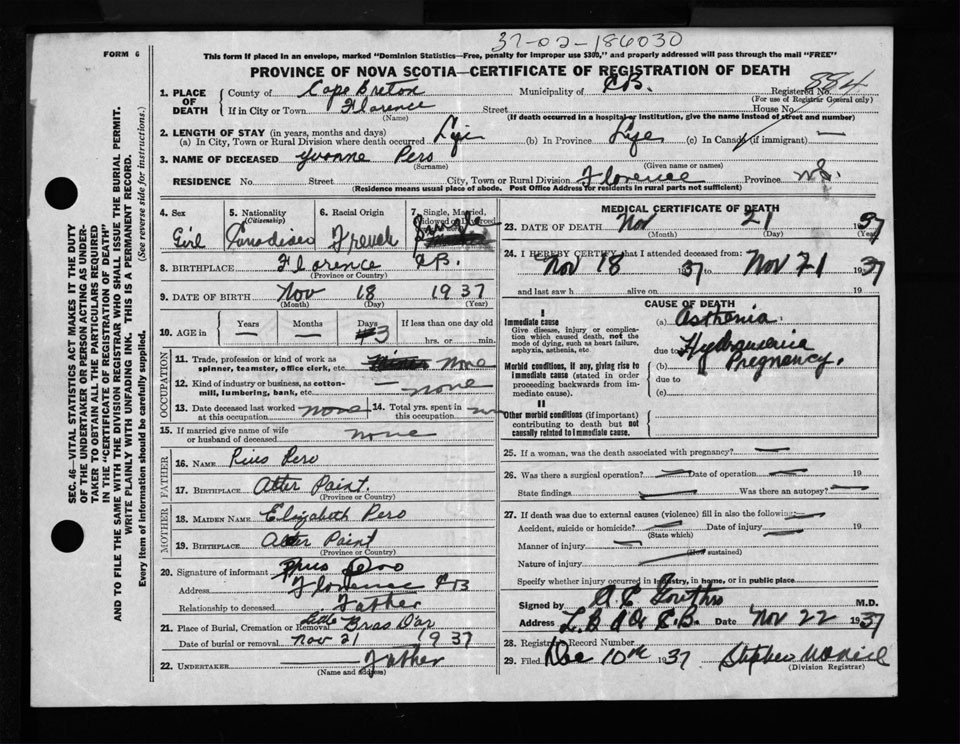 37-02-186030
FORM 6
This form if placed in an envelope, marked "Dominion Statistics—Free, penalty for improper use $300," and properly addressed will pass through the mail "FREE"
PROVINCE OF NOVA SCOTIA—CERTIFICATE OF REGISTRATION OF DEATH
SEC. 46—VITAL STATISTICS ACT MAKES IT THE DUTY
OF THE UNDERTAKER OR PERSON ACTING AS UNDER-
TAKER TO OBTAIN ALL THE PARTICULARS REQUIRED
IN THE "CERTIFICATE OF REGISTRATION OF DEATH"
AND TO FILE THE SAME WITH THE DIVISION REGISTRAR WHO SHALL ISSUE THE BURIAL PERMIT.
WRITE PLAINLY WITH UNFADING INK. THIS IS A PERMANENT RECORD.
Every item of information should be carefully supplied. (See reverse side for instructions.)
1. PLACE OF DEATH County of Cape Breton Municipality of C.B. Registered No. 884
(For use of Registrar General only)
If in City or Town Florence Street House No.
(Name) (If death occurred in a hospital or institution, give the name instead of street and number)
2. LENGTH OF STAY (in years, months and days)
(a) In City, Town or Rural Division where death occurred Life (b) In Province Life (c) In Canada (if immigrant) —
3. NAME OF DECEASED Yvonne Pero
(Surname) (Given name or names)
RESIDENCE No. Street City, Town or Rural Division Florence Province N.S.
(Residence means usual place of abode. Post Office Address for residents in rural parts not sufficient)
4. Sex Girl
5. Nationality (Citizenship) Canadian
6. Racial Origin French
7. Single, Married, Widowed or Divorced Single
8. BIRTHPLACE Florence C.B.
(Province or Country)
9. DATE OF BIRTH Nov 18 1937
(Month) (Day) (Year)
10. AGE in Years — Months — Days 3 If less than one day old hrs. or min.
OCCUPATION
11. Trade, profession or kind of work as
spinner, teamster, office clerk, etc. None
12. Kind of industry or business, as cotton-
mill, lumbering, bank, etc. — none
13. Date deceased last worked at this occupation none 14. Total yrs. spent in this occupation
15. If married give name of wife
or husband of deceased none
FATHER
16. NAME Pius Pero
17. BIRTHPLACE Alter Paint.
(Province or Country)
MOTHER
18. MAIDEN NAME Elizabeth Pero
19. BIRTHPLACE Alter Paint
(Province or Country)
20. Signature of informant Pius Pero
Address Florence C B
Relationship to deceased Father
21. Place of Burial, Cremation or Removal Little Bras D'or
Date of burial or removal Nov 21 1937
22. UNDERTAKER Father
(Name and address)
MEDICAL CERTIFICATE OF DEATH
23. DATE OF DEATH Nov 21 1937
(Month) (Day) (Year)
24. I HEREBY CERTIFY that I attended deceased from:
Nov 18 1937 to Nov 21 1937
and last saw h alive on 19
CAUSE OF DEATH
I
Immediate cause (a) Asthenia
Give disease, injury or complica-
tion which caused death, not the
mode of dying, such as heart failure,
asphyxia, asthenia, etc.
due to
Morbid conditions, if any, giving rise to (b) Pregnancy.
immediate cause (stated in order
proceeding backwards from im-
mediate cause).
due to
(c)
II
Other morbid conditions (if important)
contributing to death but not
causally related to immediate cause.
25. If a woman, was the death associated with pregnancy? —
26. Was there a surgical operation? — Date of operation — 19
State findings — Was there an autopsy? —
27. If death was due to external causes (violence) fill in also the following:—
Accident, suicide or homicide? — Date of injury — 19
(State which)
Manner of injury —
(How sustained)
Nature of injury —
Specify whether injury occurred in industry, in home, or in public place
Signed by M.D.
Address Date Nov 22 1937
28. Registrar's Record Number
29. Filed Dec 10th 1937 Stephen
(Division Registrar)